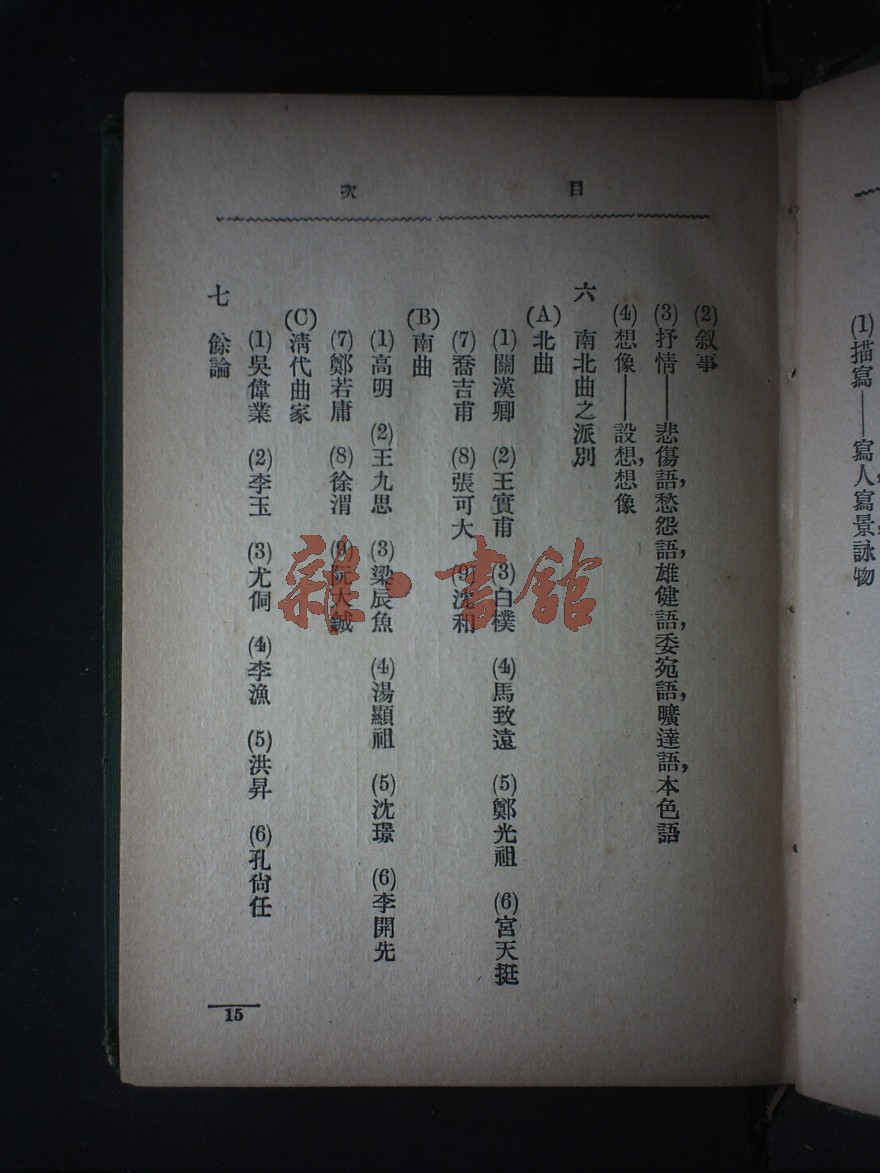 (1)描寫——寫人,寫景,詠物
目次
(2)叙事
(3)抒情——悲傷語,愁怨語,雄健語,委宛語,曠達語,本色語
(4)想像——設想,想像
六 南北曲之派別
(A)北曲
(1)關漢卿 (2)王實甫 (3)白樸 (4)馬致遠 (5)鄭光祖 (6)宮天挺
(7)喬吉甫 (8)張可大 (9)沈和
(B)南曲
(1)高明 (2)王九思 (3)梁辰魚 (4)湯顯祖 (5)沈璟 (6)李開先
(7)鄭若庸 (8)徐渭 (9)阮大鋮
(C)清代曲家
(1)吳偉業 (2)李玉 (3)尤侗 (4)李漁 (5)洪昇 (6)孔尙任
七 餘論
15
雜·書館